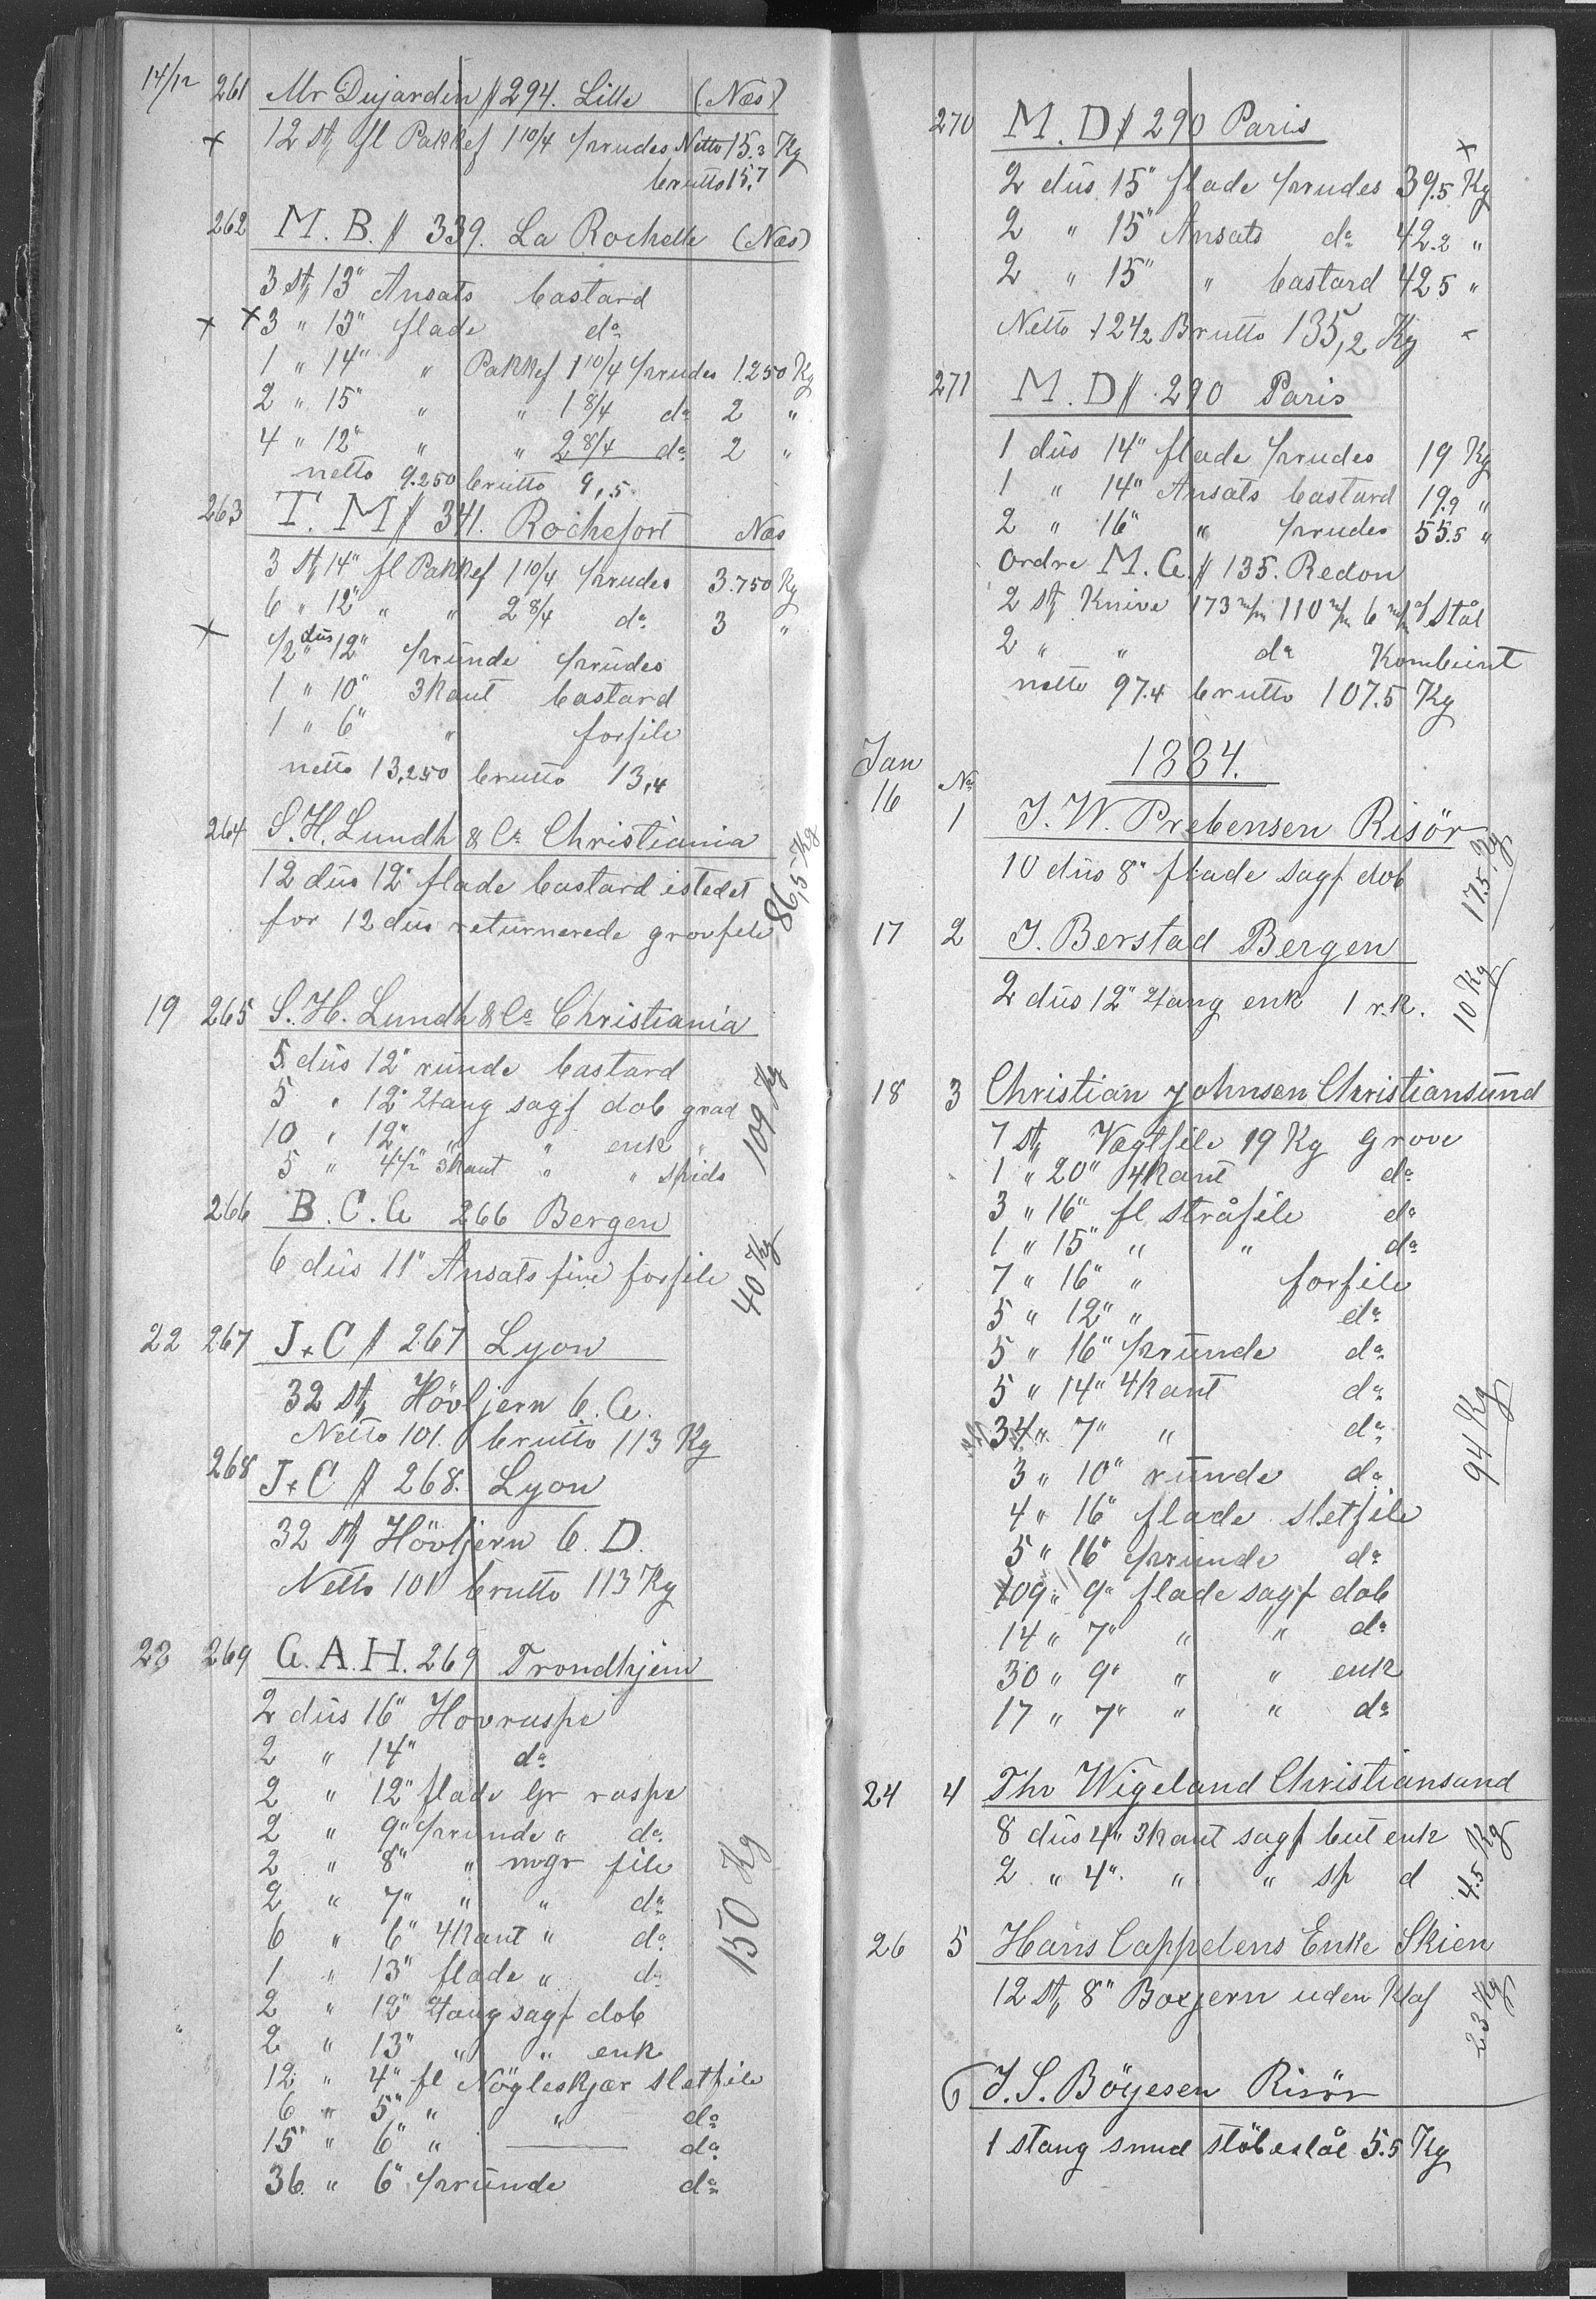 14/12 261 Mr Dujardin # 294. Lille (Næs)
+ 12 st, fl Pakkef 1 10/4 prudes Netto 15.3 Kg
brutto 15.7
262 M. B. # 339. La Rochelle (Næs)
3 st, 13" Ansats bastard
+ + 3 " 13" flade do
1 " 14" " Pakkef 1 10/4 prudes 1.250 Kg
2 " 15" " " 1 8/4 do 2 "
4 " 12" " " 2 8/4 do 2 "
netto 9.250 brutto 9,5
263 T. M # 341. Rochefort Næs
3 st, 14" fl Pakkef 1 10/4 prudes 3.750 Kg
6 " 12" " " 2 8/4 do 3 "
+ 1/2 düs 12" pründe prüdes
1 " 10" 3kant bastard
1 " 6" " forfile
netto 13,250 brutto 13,4
264 S. H. Lundh & Co Christiania
12 düs 12" flade bastard istedet
for 12 düs returnerede grovfile 86,5 Kg
19 265 S. H. Lundh & Co Christiania
5 düs 12" runde bastard
5 " 12" 4tang sagf dob grad
10 " 12" " " enk "
5 " 4 1/2" 3kant " " spids 109 Kg
266 B. C. G 266 Bergen
6 düs 11" Ansats fine forfile 40 Kg
22 267 J + C # 267 Lyon
32 st, Hövljern 6. G.
Netto 101. brutto 113 Kg
268 J + C # 268. Lyon
32 st, Hövljern 6. D.
Netto 101 brutto 113 Kg
22 269 G. A. H. 269 Trondhjem
2 düs 16" Hovraspe
2 " 14" do
2 " 12" flade Gr raspe
2 " 9" prunde " do
2 " 8" " mgr file
2 " 7" " " do
6 " 6" 4kant " do
1 " 13" flade " do
2 " 12" 4tang sagf dob
2 " 13" " " enk
12 " 4" fl Nögleskjær sletfile
6 " 5" " " do
15 " 6" " do
36 " 6" pründe do
150 Kg
270 M. D # 290 Paris
2 düs 15" flade prudes 39.5 Kg
2 " 15" Ansats do 42.2 "
2 " 15" " bastard 42 5 "
Netto 124 2 Brutto 135,2 Kg
271 M. D # 290 Paris
1 düs 14" flade prudes 19 Kg
1 " 14" Ansats bastard 19.9 "
2 " 16" " prudes 55.5 "
Ordre M. G. # 135. Redon
2 st, Knive 173 m/m 110 m/m 6 m/m af Stål
2 " " do Kombeint
netto 97.4 brutto 107.5 Kg
Jan 1884.
16 No 1 J. W. Prebensen Risör
10 düs 8" flade sagf dob 17.5 Kg
17 2 J. Berstad Bergen
2 düs 12" 4tang enk 1 r.k. 10 Kg
18 3 Christian Johnsen Christiansünd
7 st, Vægtfile 19 Kg grove
1 " 20" 4kant do
3 " 16" fl stråfile do
1 " 15" " " do
7 " 16" " forfile
5 " 12" " do
5 " 16" pründe do
5 " 14" 4kant do
34 " 7" " do
3 " 10" runde do
4 " 16" flade sletfile
5 " 16" prunde do
109 " 9" flade sagf dob
14 " 7" " " do
30 " 9" " " enk
17 " 7" " " do
94 Kg
24 4 Thr Wigeland Christiansand
8 düs 4" 3kant sagf but enk
2 " 4" " " sp d 4.5 Kg
26 5 Hans Cappelens Enke Skien
12 st, 8" Boxjern uden Klaf 23 Kg
6 J. S. Böyesen Risör
1 stang smud stöbestål 5.5 Kg